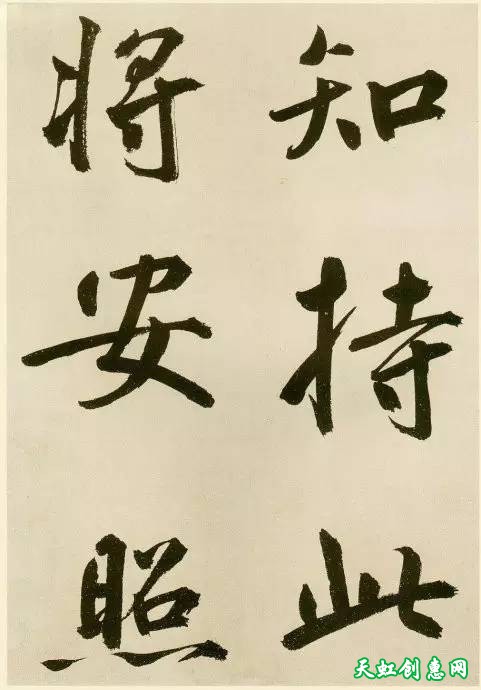 知持此
將安照
天虹创惠网